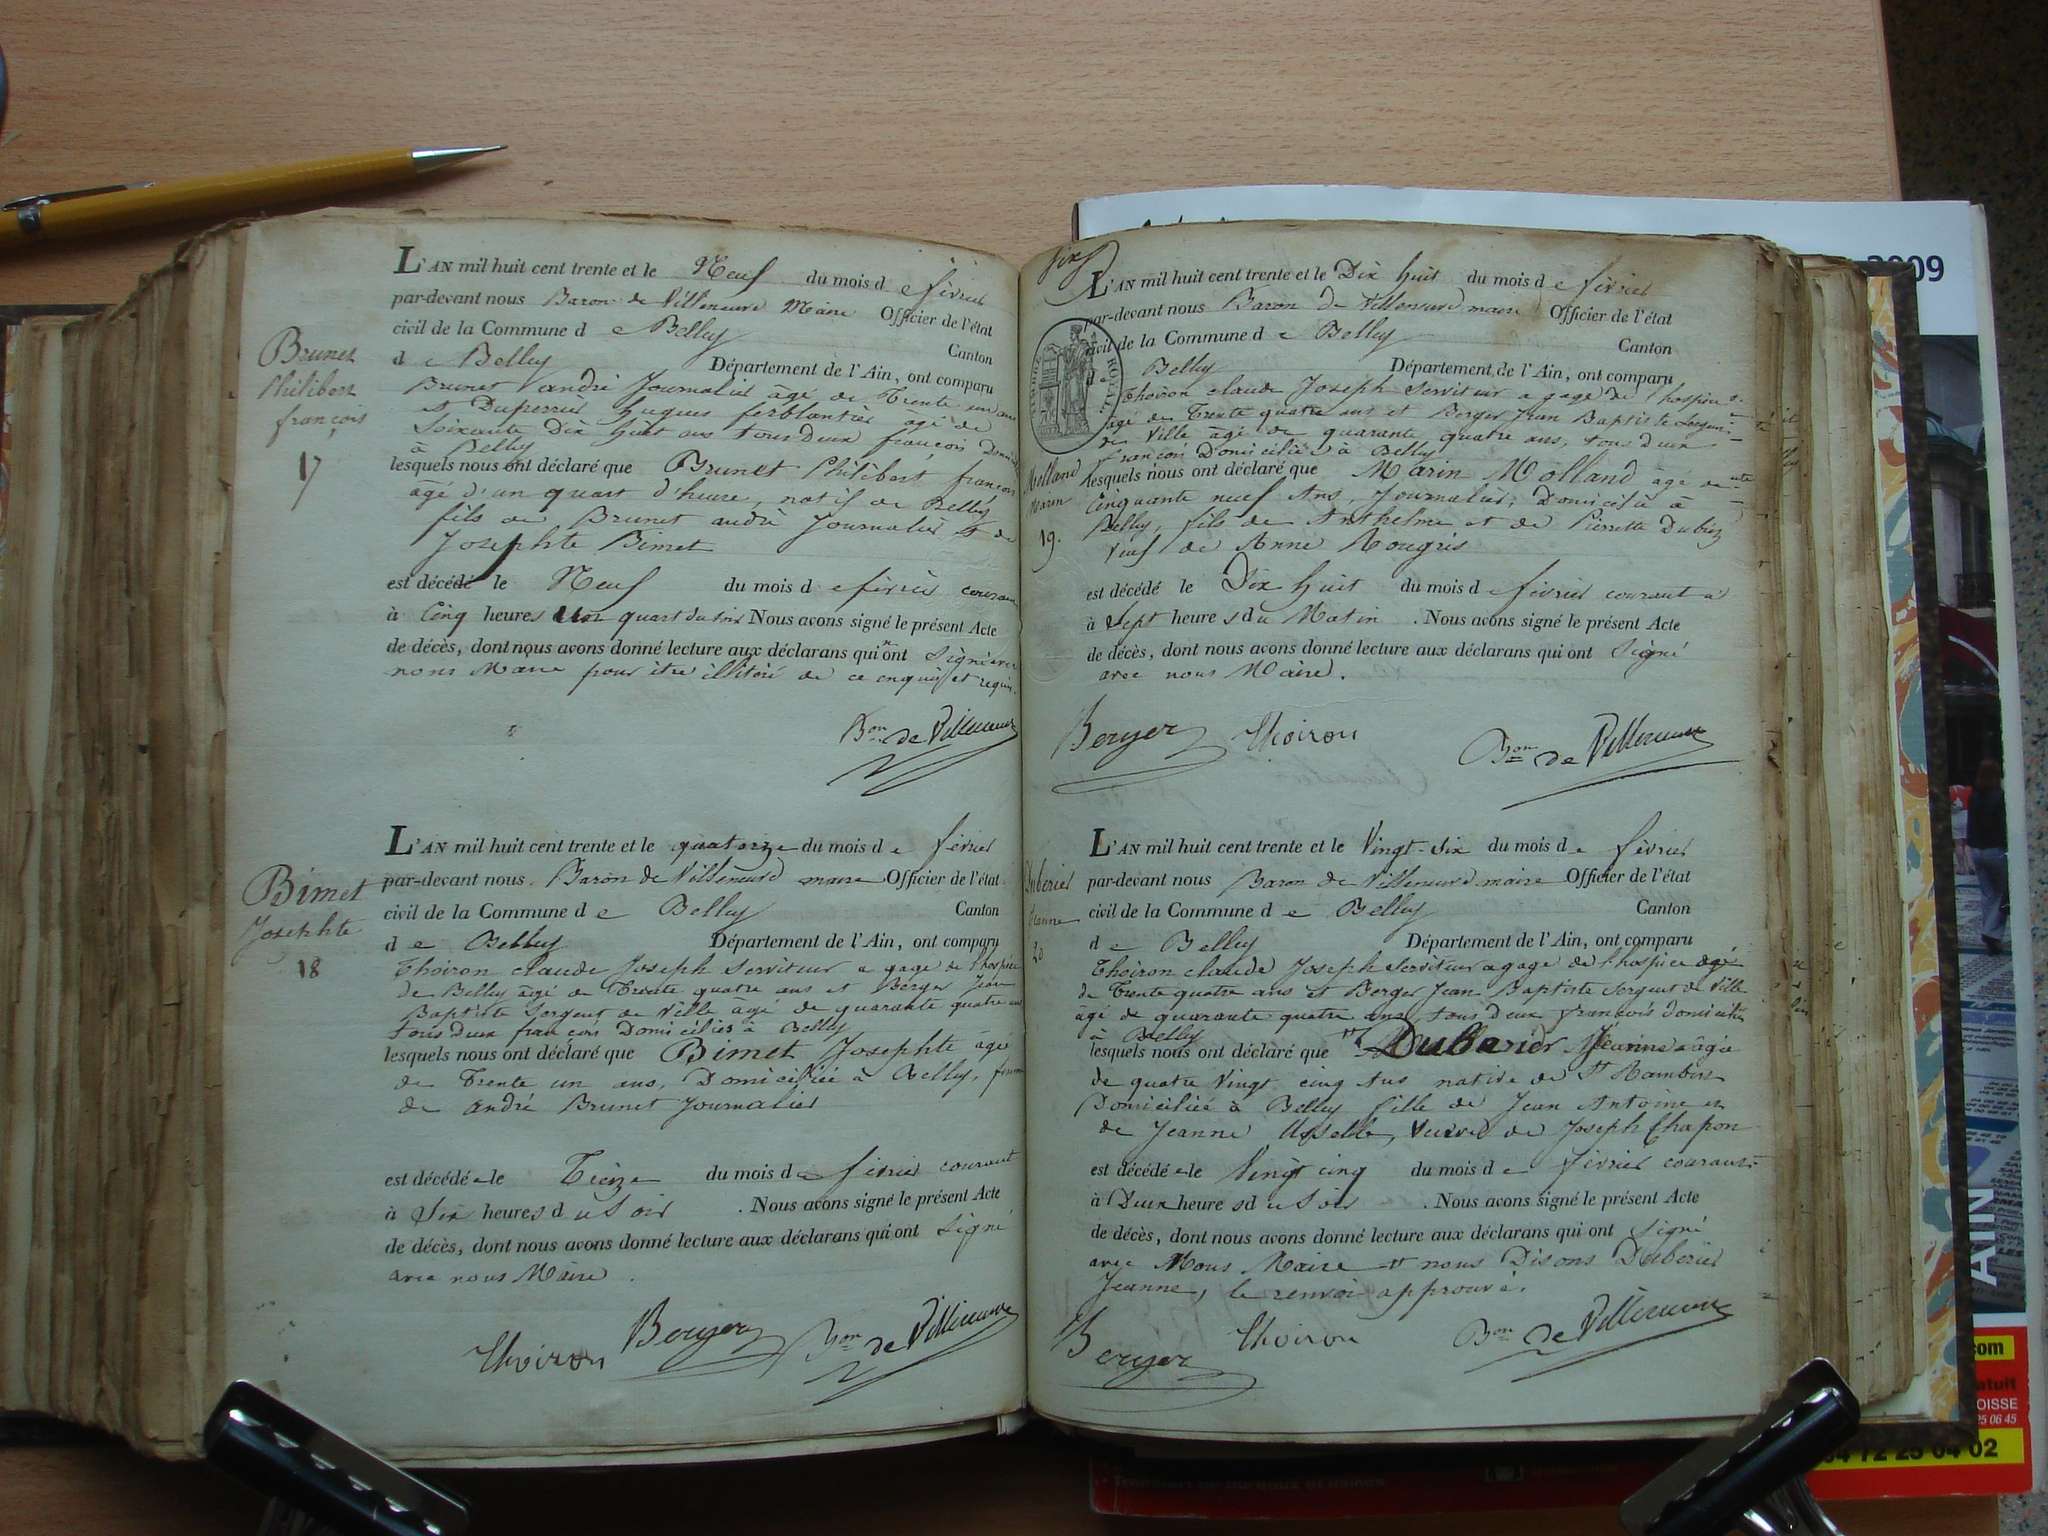 L'AN mil huit cent trente et le Neuf du mois de février
par-devant nous Baron de Villeneuve Maire Officier de l'état
civil de la Commune de Belley Canton
de Belley Département de l'Ain, ont comparu
Brunet andré Journalier âgé de Trente un ans
et Duperrier hugues ferblantier âgé de
Soixante Dix huit ans tous deux françois
à Belley
lesquels nous ont déclaré que Brunet Philibert françois
âgé d'un quart d'heure, natif de Belley
fils de Brunet andré Journalier et de
Josephte Bimet
est décédé le Neuf du mois de février courant
à Cinq heures un quart du soir Nous avons signé le présent Acte
de décès, dont nous avons donné lecture aux déclarans qui n'ont signé avec
nous Maire pour être illitéré de ce enquis et requis.
Bon de Villeneuve
Brunet
Philibert
françois
17
L'AN mil huit cent trente et le quatorze du mois de février
par-devant nous Baron de Villeneuve maire Officier de l'état
civil de la Commune de Belley Canton
de Belley Département de l'Ain, ont comparu
Thoiron claude Joseph Serviteur a gage de l'hospice
de Belley âgé de Trente quatre ans et Berger Jean
Baptiste Sergent de Ville âgé de quarante quatre ans
tous deux françois Domiciliés à Belley
lesquels nous ont déclaré que Bimet Josephte âgée
de Trente un ans, Domiciliée à Belley, femme
de andré Brunet Journalier
est décédée le Treize du mois de février courant
à Six heures du Soir . Nous avons signé le présent Acte
de décès, dont nous avons donné lecture aux déclarans qui ont Signé
avec nous Maire.
Thoiron Berger Bon de Villeneuve
Bimet
Josephte
18
six
L'AN mil huit cent trente et le Dix huit du mois de février
par-devant nous Baron de Villeneuve maire Officier de l'état
civil de la Commune de Belley Canton
de Belley Département de l'Ain, ont comparu
Thoiron claude Joseph Serviteur a gage de l'hospice
âgé de Trente quatre ans et Berger Jean Baptiste Sergent
de Ville âgé de quarante quatre ans, tous deux
françois Domiciliés à Belley
lesquels nous ont déclaré que Marin Molland âgé de
Cinquante neuf Ans, Journalier, Domicilié à
Belley, fils de Anthelme et de Pierrette Dubiez
Veuf de Anne Rougris
est décédé le Dix huit du mois de février courant à
à Sept heures du Matin . Nous avons signé le présent Acte
de décès, dont nous avons donné lecture aux déclarans qui ont Signé
avec nous Maire.
Berger Thoiron Bon de Villeneuve
Molland
Marin
19.
TIMBRE ROYAL
L'AN mil huit cent trente et le Vingt-Six du mois de février
par-devant nous Baron de Villeneuve maire Officier de l'état
civil de la Commune de Belley Canton
de Belley Département de l'Ain, ont comparu
Thoiron claude Joseph Serviteur a gage de l'hospice âgé
de Trente quatre ans et Berger Jean Baptiste Sergent de Ville
âgé de quarante quatre ans, tous deux françois domiciliés
à Belley
lesquels nous ont déclaré que Duberier Jeanne âgée
de quatre Vingt cinq Ans native de St Rambert
Domiciliée à Belley fille de Jean Antoine et
de Jeanne Usselle, Veuve de Joseph Chapon
est décédée le Vingt cinq du mois de février courant
à Deux heures du Soir . Nous avons signé le présent Acte
de décès, dont nous avons donné lecture aux déclarans qui ont Signé
avec Nous Maire et nous Disons Duberier
Jeanne, le renvoi approuvé.
Berger Thoiron Bon de Villeneuve
Duberier
Jeanne
20
2009
AIN
.com
04 72 25 04 02